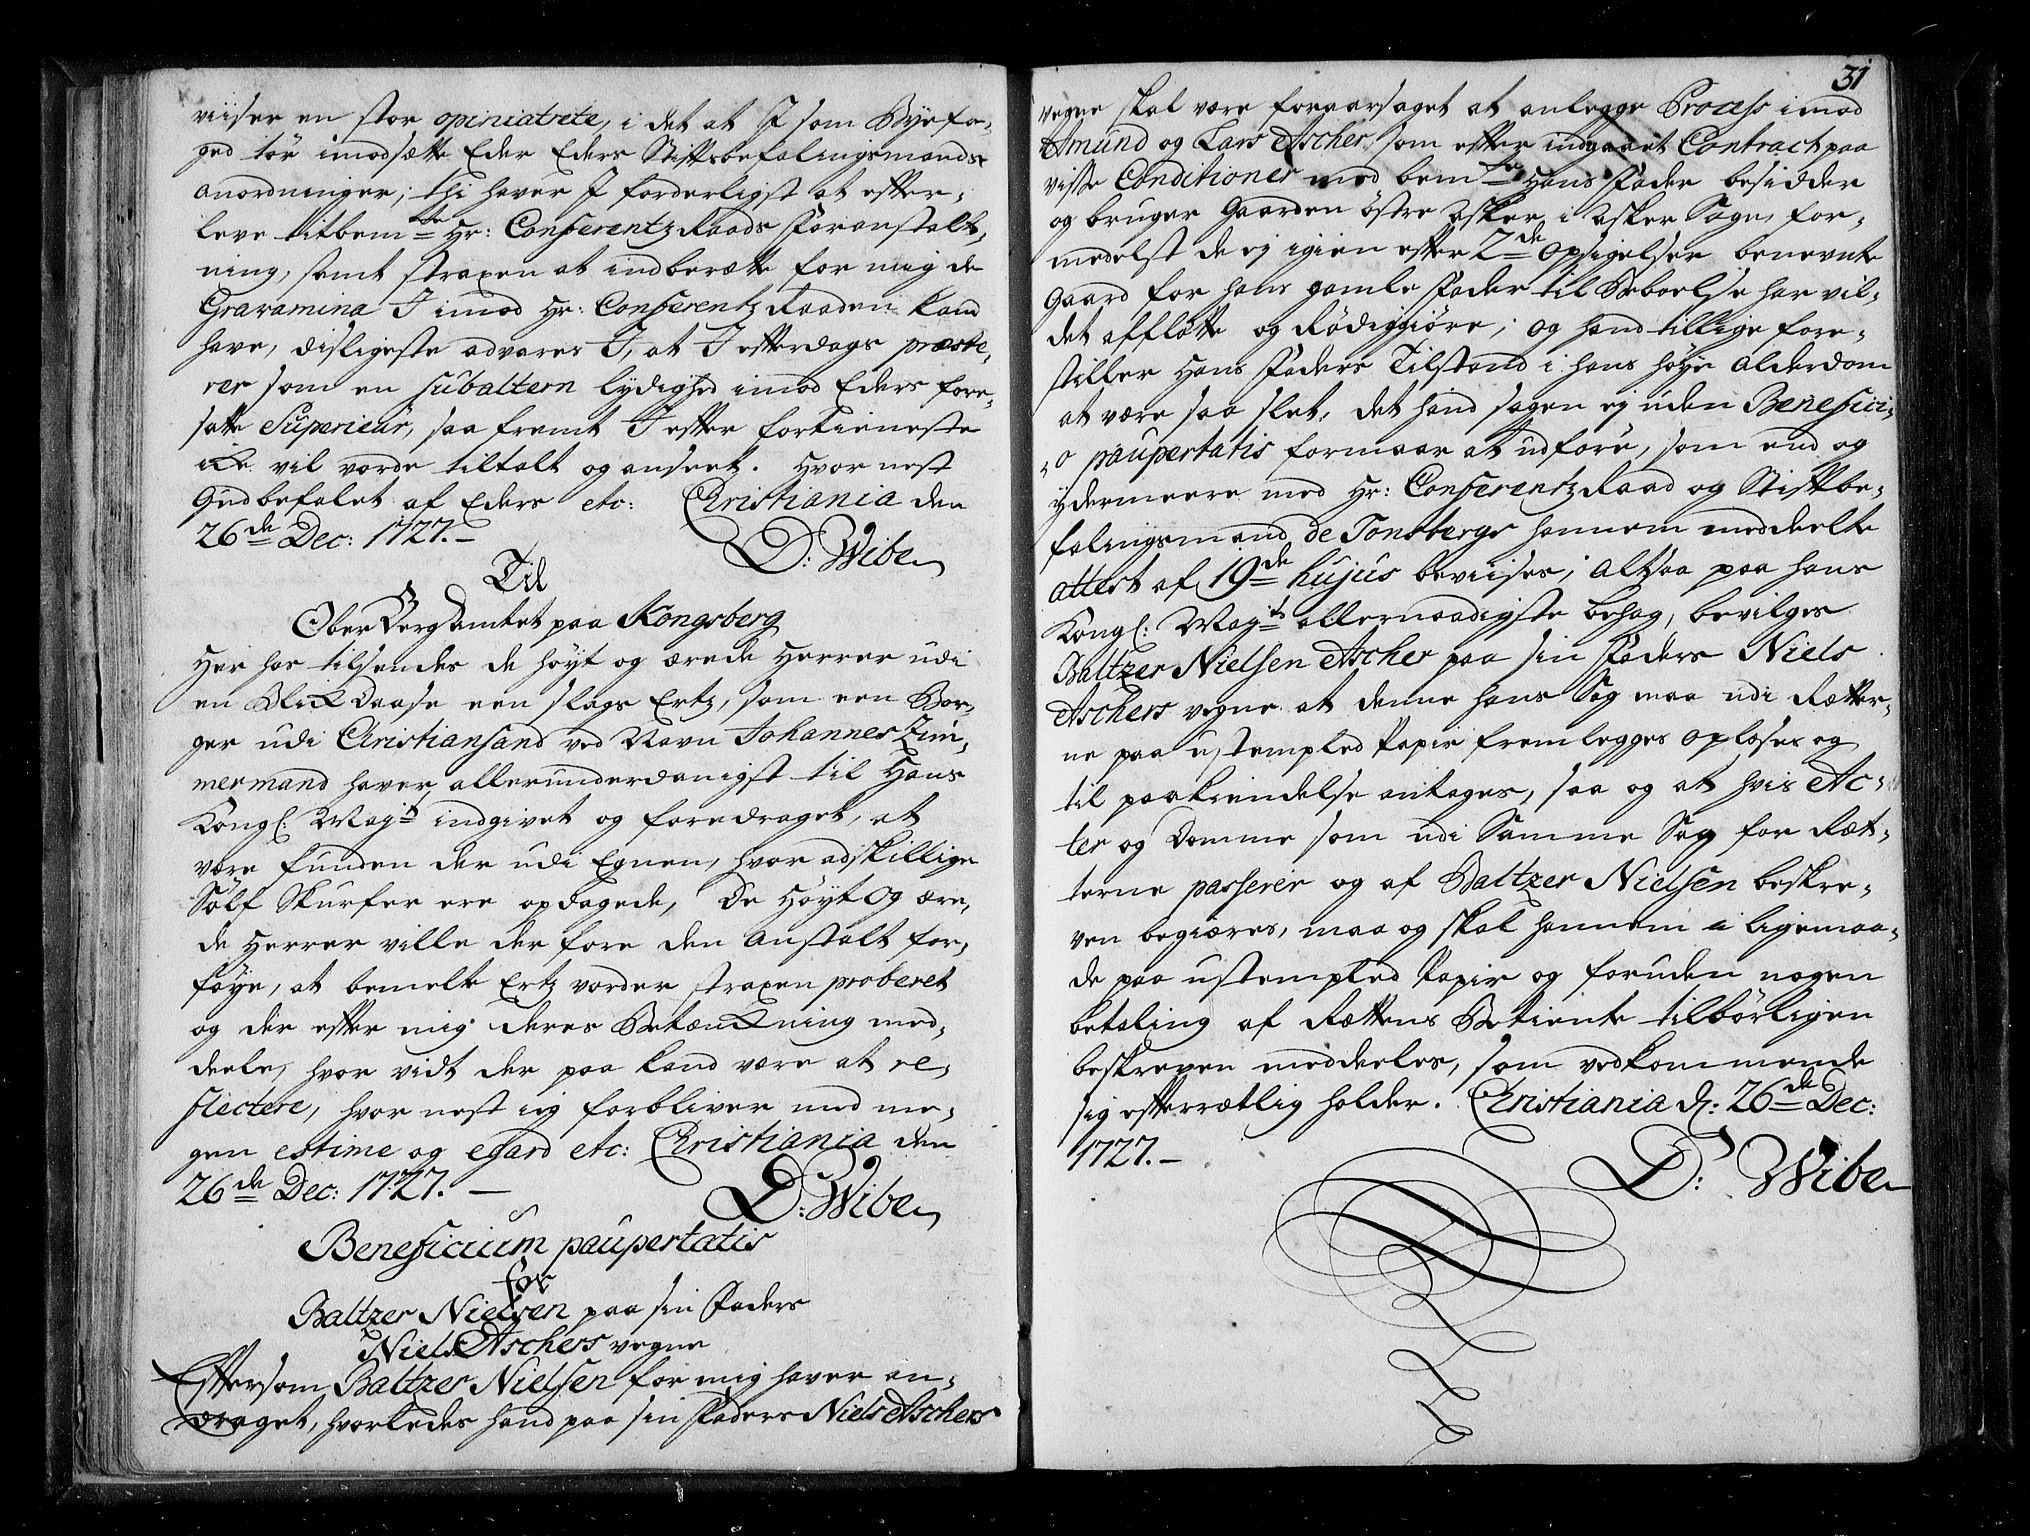 viiser en stor opiniatrete, i det at I som Byefo-
ged tör imodsætte Eder Eders Stiftsbefalingsmands
anordninger; thi haver I forderligst at efter-
leve titbem.te Hr: Conferentz Raads Foranstalt-
ning, samt straxen at indberætte for mig de
Gravamina I imod Hr: Conferentz Raaden kand
have, disligeste advares I, at I efterdags præste-
rer som en subaltern lydighed imod Eders fore-
satte Superieur, saa fremt I efter fortieneste
icke vil vorde tiltalt og anseet. Hvor nest
Gudbefalet af Eders etc: Christiania den
26de Dec: 1727.-
D: Wibe
Til
Ober Berg Amtet paa Kongsberg
Her hos tilsendes de höyt og ærede Herrer udi
en Blick Daase een slags Ertz, som een Bor-
ger udi Christiansand ved Navn Johannes Zim-
mermand haver allerunderdanigst til Hans
Kongl: Maj.ts indgivet og foredraget, at
være funden der udi Egnen, hvor adskillige
Sölf Skurfer ere opdagede, De Höyt Og ære-
de Herrer ville der fore den Anstalt for-
föye, at bemelte Ertz vorder straxen proberet
og der efter mig deres Betænckning med-
deele, hvor vidt der paa kand være at re-
flectere, hvor nest ieg forbliver med me-
gen estime og egard etc: Christiania den
26de Dec: 1727.-
D: Wibe
Beneficium paupertatis
for
Baltzer Nielsen paa sin Faders
Niels Aschers vegne
Eftersom Baltzer Nielsen for mig haver an-
draget, hvorledes hand paa sin Faders Niels Aschers
31
vegne skal være foraarsaget at anlegge Process imod
Amund og Lars Ascher, som efter indgaaet Contract paa
visse Conditioner med bem.te Hans Fader besidder
og bruger Gaarden östre Asker i Asker Sogn, for-
medelst de ej igien efter 2de opsigelser benevnte
Gaard for hans gamle Fader til Beboelse har vil-
det afflötte og Rödiggiöre; og hand tillige fore-
stiller Hans Faders Tilstand i hans höye Alderdom
at være saa slet, det hand sagen ej uden Benefici-
o paupertatis formaar at udföre, som end og
ydermeere med Hr: Conferentz Raad og Stiftbe-
falingsmand de Tonsbergs hannem meddeelte
attest af 19de hujus beviises; Altsaa paa Hans
Kongl: Maj.ts allernaadigste behag, bevilges
Baltzer Nielsen Ascher paa sin Faders Niels
Aschers vegne at denne hans Sag maa udi Rætter-
ne paa ustempled Papir fremlegges oplöses og
til paakiendelse antages, saa og at hvis Ac-
ter og Domme som udi Samme Sag for Ræt-
terne passerer og af Baltzer Nielsen beskre-
ven begiæres, maa og skal hannem i ligemaa-
de paa ustempled Papir og foruden nogen
betaling af Rettens Betiente tilbörligen
beskreven meddeeles, som vedkommende
sig efterrætlig holder. Christiania d: 26de Dec:
1727.-
D: Wibe